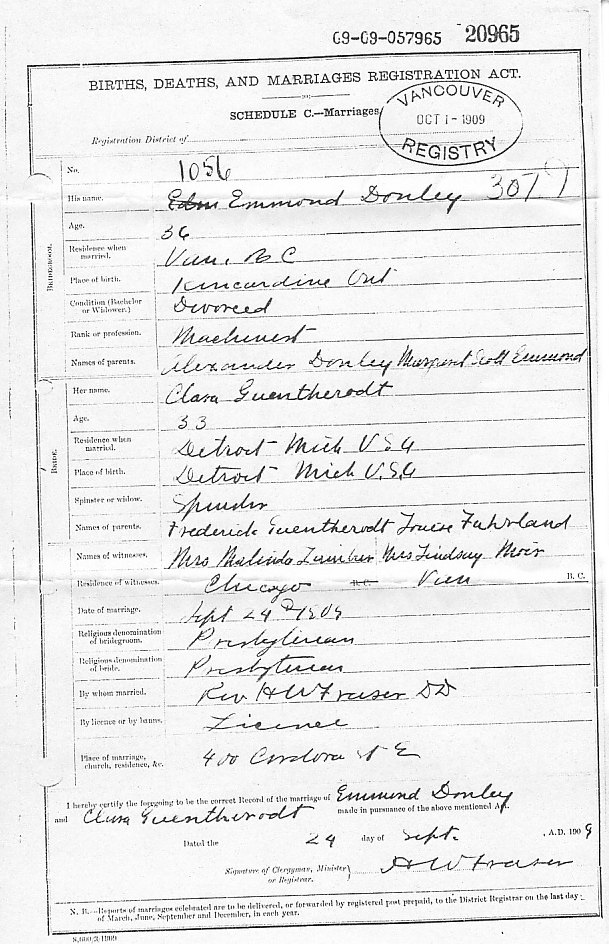 09-09-057965 20965
BIRTHS, DEATHS, AND MARRIAGES REGISTRATION ACT.
SCHEDULE C.—Marriages
VANCOUVER
OCT 1 - 1909
REGISTRY
Registration District of
No. 1056
His name. Edm Emmond Donley 3079
Age. 36
Residence when married. Van. B C
Place of birth. Kincardine Ont
Condition (Bachelor or Widower.) Divorced
Rank or profession. Machinest
Names of parents. Alexander Donley Margaret Scott Emmond
BRIDEGROOM.
Her name. Clara Guentherodt
Age. 33
Residence when married. Detroit Mich U.S.A
Place of birth. Detroit Mich U.S.A
Spinster or widow. Spinster
Names of parents. Frederick Guentherodt Louise Fahrland
BRIDE.
Names of witnesses. Mrs Malinda Mrs Lindsay Moir
Residence of witnesses. Chicago B.C. Van B.C.
Date of marriage. Sept 29th 1909
Religious denomination of bridegroom. Presbyterian
Religious denomination of bride. Presbyterian
By whom married. Rev H W Fraser DD
By licence or by banns. Licence
Place of marriage, church, residence, &c. 400 Cordova St E
I hereby certify the foregoing to be the correct Record of the marriage of Emmond Donley
and Clara Guentherodt made in pursuance of the above mentioned Act.
Dated the 29 day of Sept. , A.D. 1909
Signature of Clergyman, Minister or Registrar. H W Fraser
N. B.—Reports of marriages celebrated are to be delivered, or forwarded by registered post prepaid, to the District Registrar on the last day
of March, June, September and December, in each year.